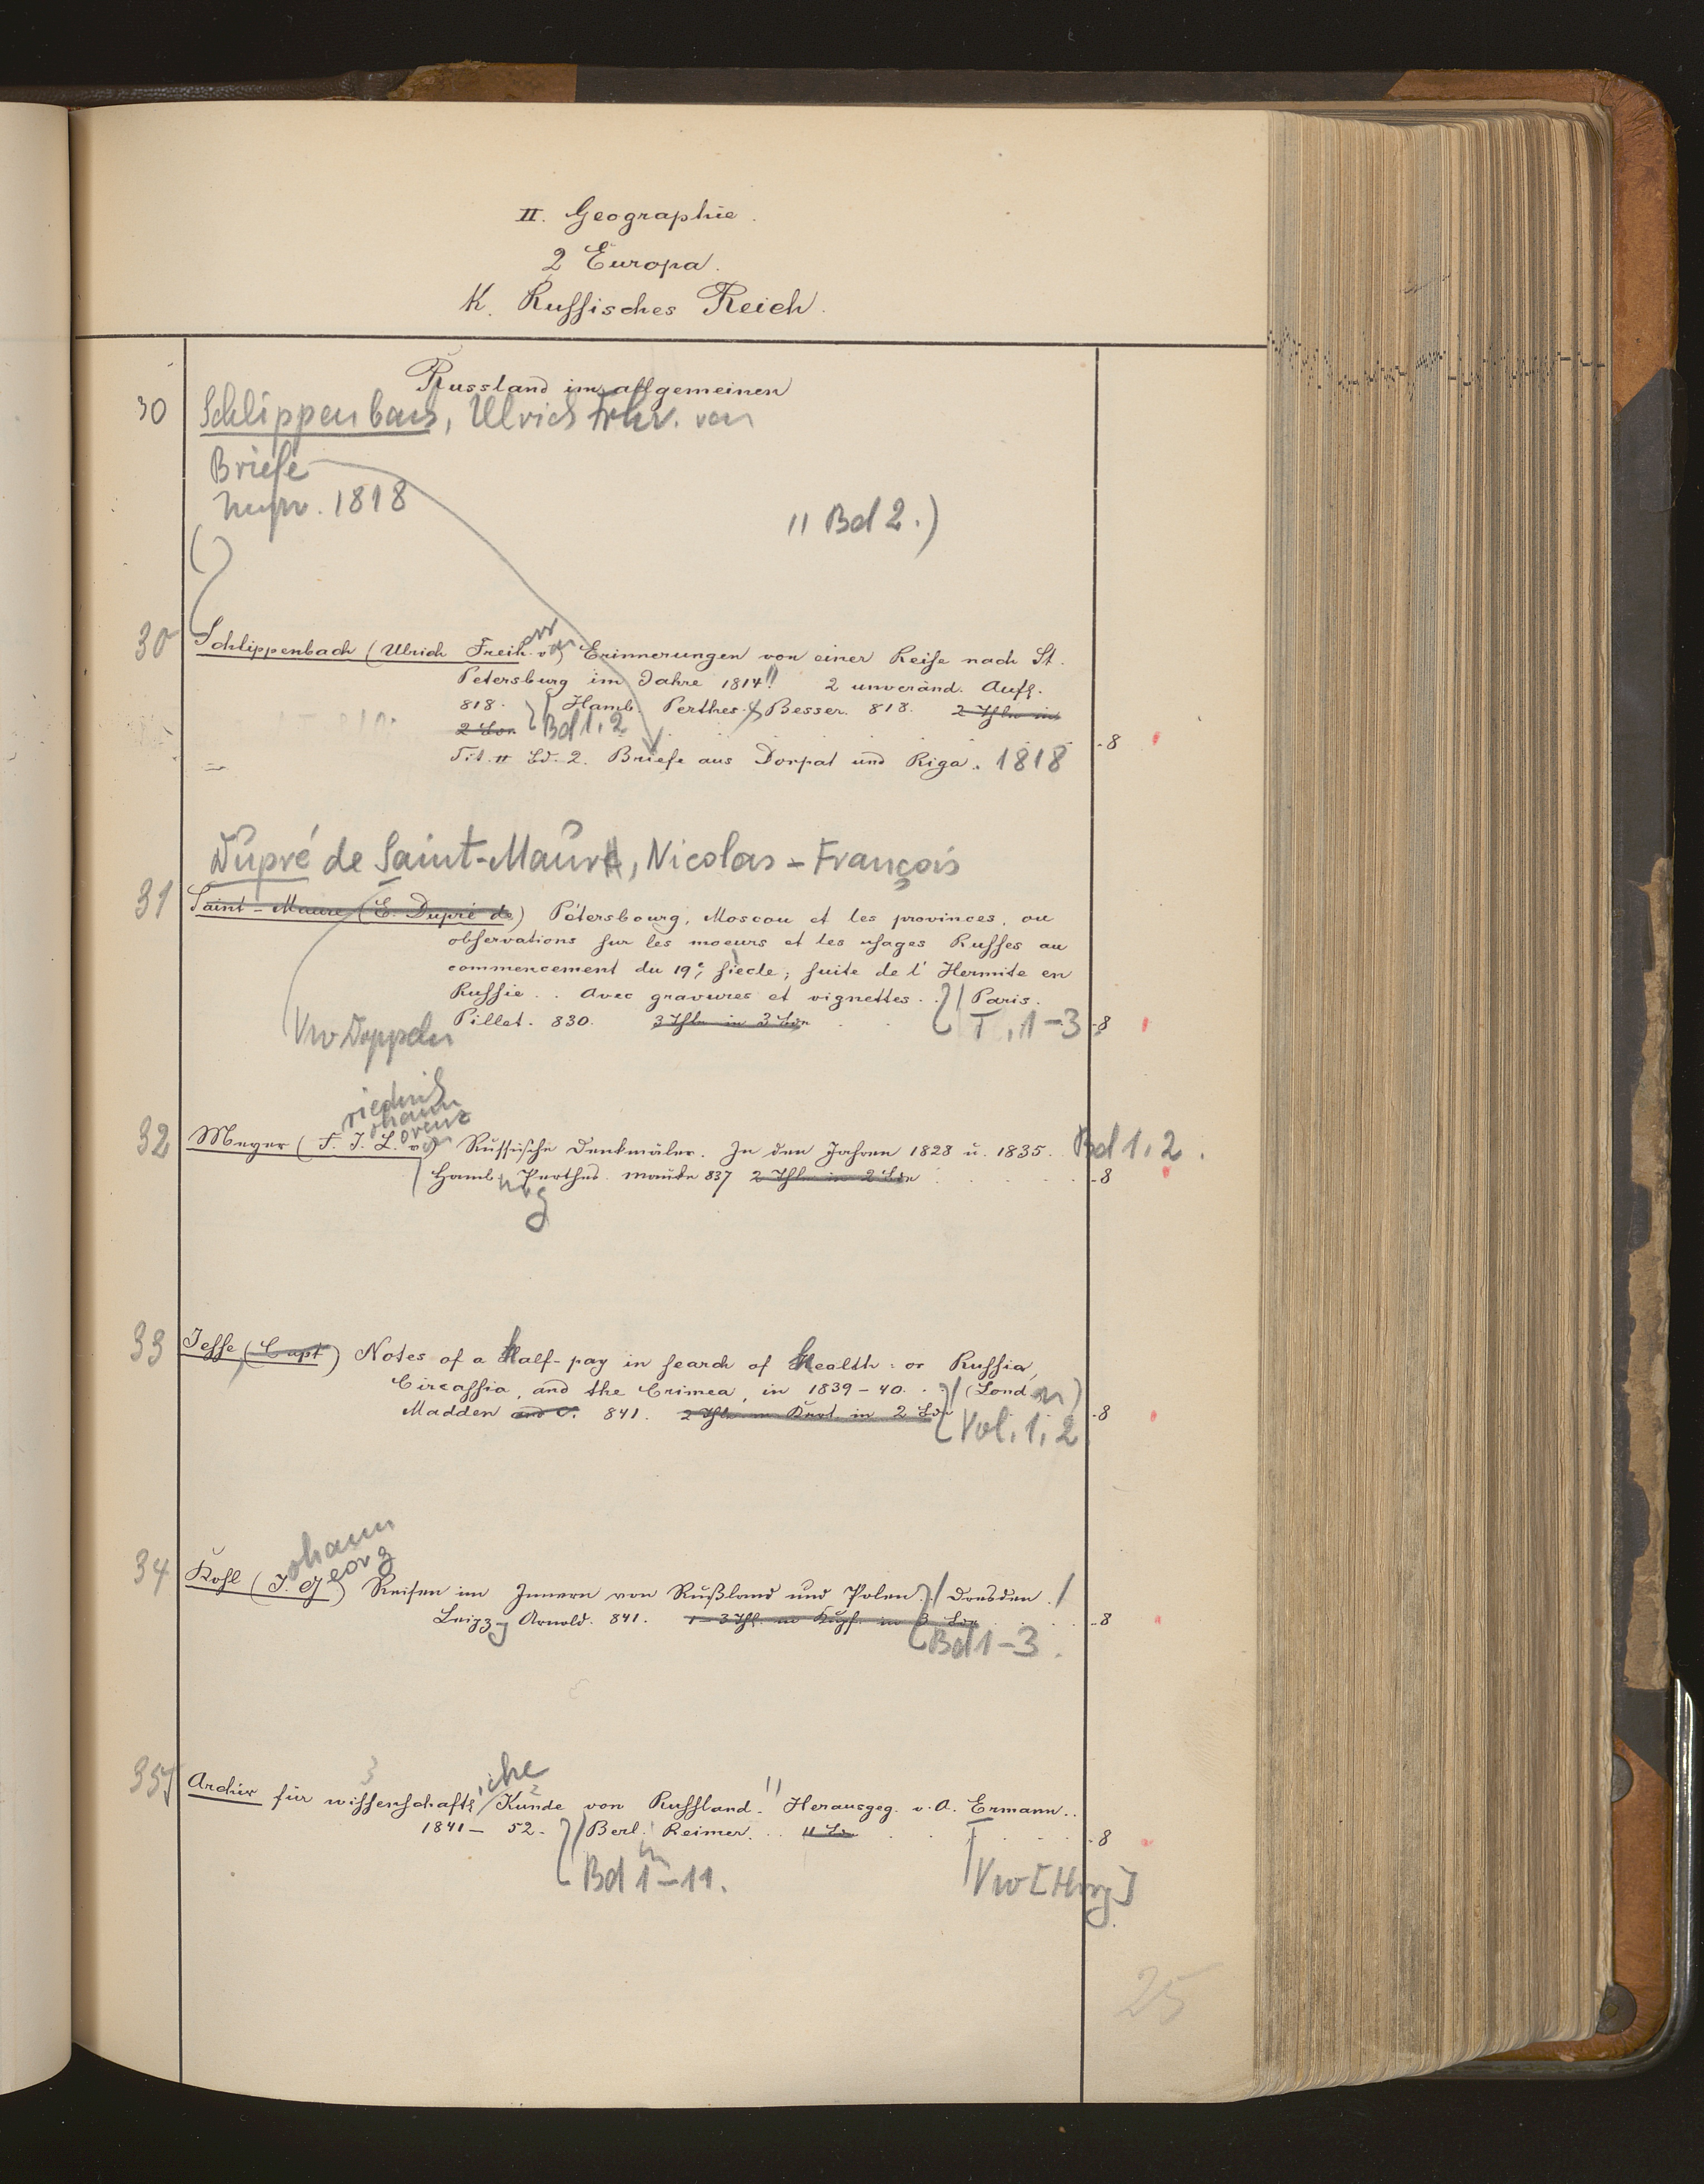 II. Geographie.
2 Europa.
K. Russisches Reich.
Russland im allgemeinen
30 Schlippenbach, Ulrich Frhr. von
Briefe
1818
" Bd 2.)
30 Schlippenbach (Ulrich Freih. v.) Erinnerungen von einer Reise nach St.
Petersburg im Jahre 1814" 2 unveränd. Aufl.
818. Hamb. Perthes & Besser. 818. 2 Thle in
2 Bdn Bd 1, 2
Tit. v Bd. 2. Briefe aus Dorpat und Riga. 1818 -8
Dupré de Saint-Maure, Nicolas-François
31 Saint-Maure (E. Dupré de) Pétersbourg, Moscou et les provinces, ou
observations sur les moeurs et les usages Russes au
commencement du 19e, siècle; suite de l'Hermite en
Russie.. Avec gravures et vignettes.. Paris.
Pillet. 830. 3 Thle in 3 Bdn T. 1-3 -8
Vw Doppeln
riedrich
ohann
orenz
32 Meyer (F. J. L. von) Russische Denkmäler. In den Jahren 1828 u. 1835. Bd 1, 2.
Hamb. Perthes. Mauke 837 2 Thle in 2 Bdn -8
urg
33 Jesse, (Capt) Notes of a half-pay in search of health: or Russia,
Circassia, and the Crimea, in 1839-40.. (London)
Madden and C. 841. 2 Thle m Kart. in 2 Bdn -8
Vol. 1, 2
ohann
eorg
34 Kohl (J. G) Reisen im Innern von Rußland und Polen. Dresden.
Leipzg Arnold. 841. 1-3 Thl. m Kupf. in 3 Bdn -8
Bd 1-3.
3 iche 2
35 Archiv für wissenschaftl. Kunde von Russland." Herausgeg. v. A. Ermann..
1841- 52. Berl. Reimer.. 11 Bde -8
in
Bd 1-11. Vw [Hrsg]
25